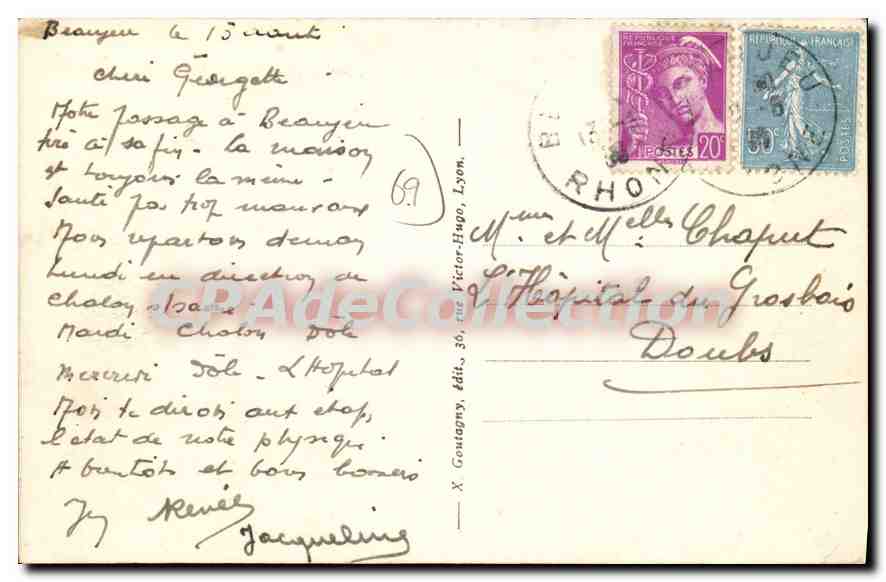 Beaujeu le 15 août
Chère Georgette
Notre passage à Beaujeu
tire à sa fin - la maison
est toujours la même -
Santé pas trop mauvaise
Nous repartons demain
Lundi en direction de
Chalon s/Saône
Mardi Chalon Dôle
Mercredi Dôle - L'Hopital
Nous te dirons aux étapes
l'état de notre physique
A bientôt et bons baisers
Renée
Jacqueline
69
X. Goutagny, édit., 36, rue Victor-Hugo, Lyon.
CPAdeCollection.com
REPUBLIQUE FRANÇAISE
POSTES 20c
REPUBLIQUE FRANÇAISE
POSTES
RHONE
Mmes et Melles Chaput
L'Hôpital du Grosbois
Doubs